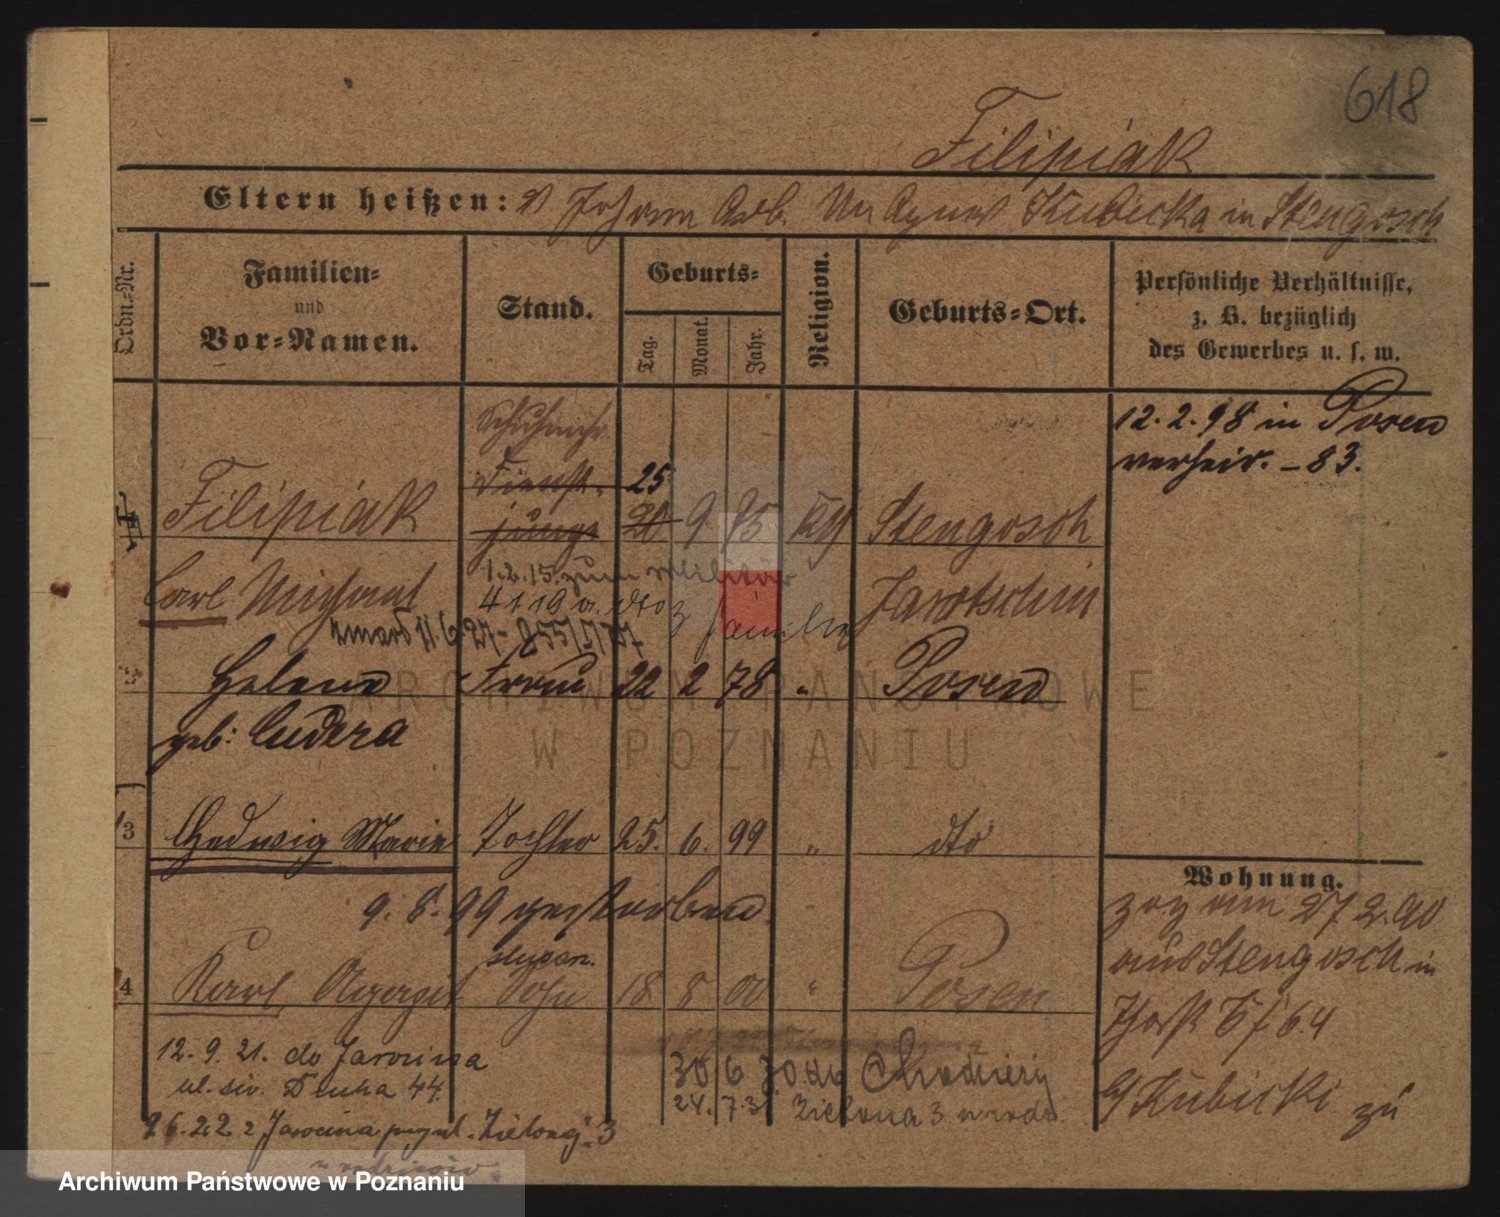 618
Filipiak
Eltern heißen: Johann Arb. Agnes Kubicka in Stengosch
Ordn.-Nr.
Familien-
und
Vor-Namen.
Stand.
Geburts-
Tag.
Monat.
Jahr.
Religion.
Geburts-Ort.
Persönliche Verhältnisse,
z. B. bezüglich
des Gewerbes u. s. w.
12.2.98 in Posen
verheir. – 83.
Schuhmchr.
Dienst- 25
Filipiak junge 20 9 75 Stengosch
Carl Michael 1.2.15. zum Militär Jarotschin
4 1 19 a. dto z Familie
zmarł 11.6.27 - 955/I/27
2 Helene Frau 22 2 78 " Posen
geb: Cudera
3 Hedwig Marie Tochter 25. 6. 99 " dto
9.8.99 gestorben
ślusarz.
4 Karl Sohn 18 8 00 " Posen
Wohnung.
zog am 27 2. 90
aus Stengosch in
64
b/ Kubicki zu
12.9.21. do Jarocina
ul. św. Ducha 44.
30 6 30 do Chodzieży
24. 7. 3 Zielona 3 u rodz.
26.22 z Jarocina Zielona 3
u rodziców
ARCHIWUM PAŃSTWOWE
W POZNANIU
Archiwum Państwowe w Poznaniu